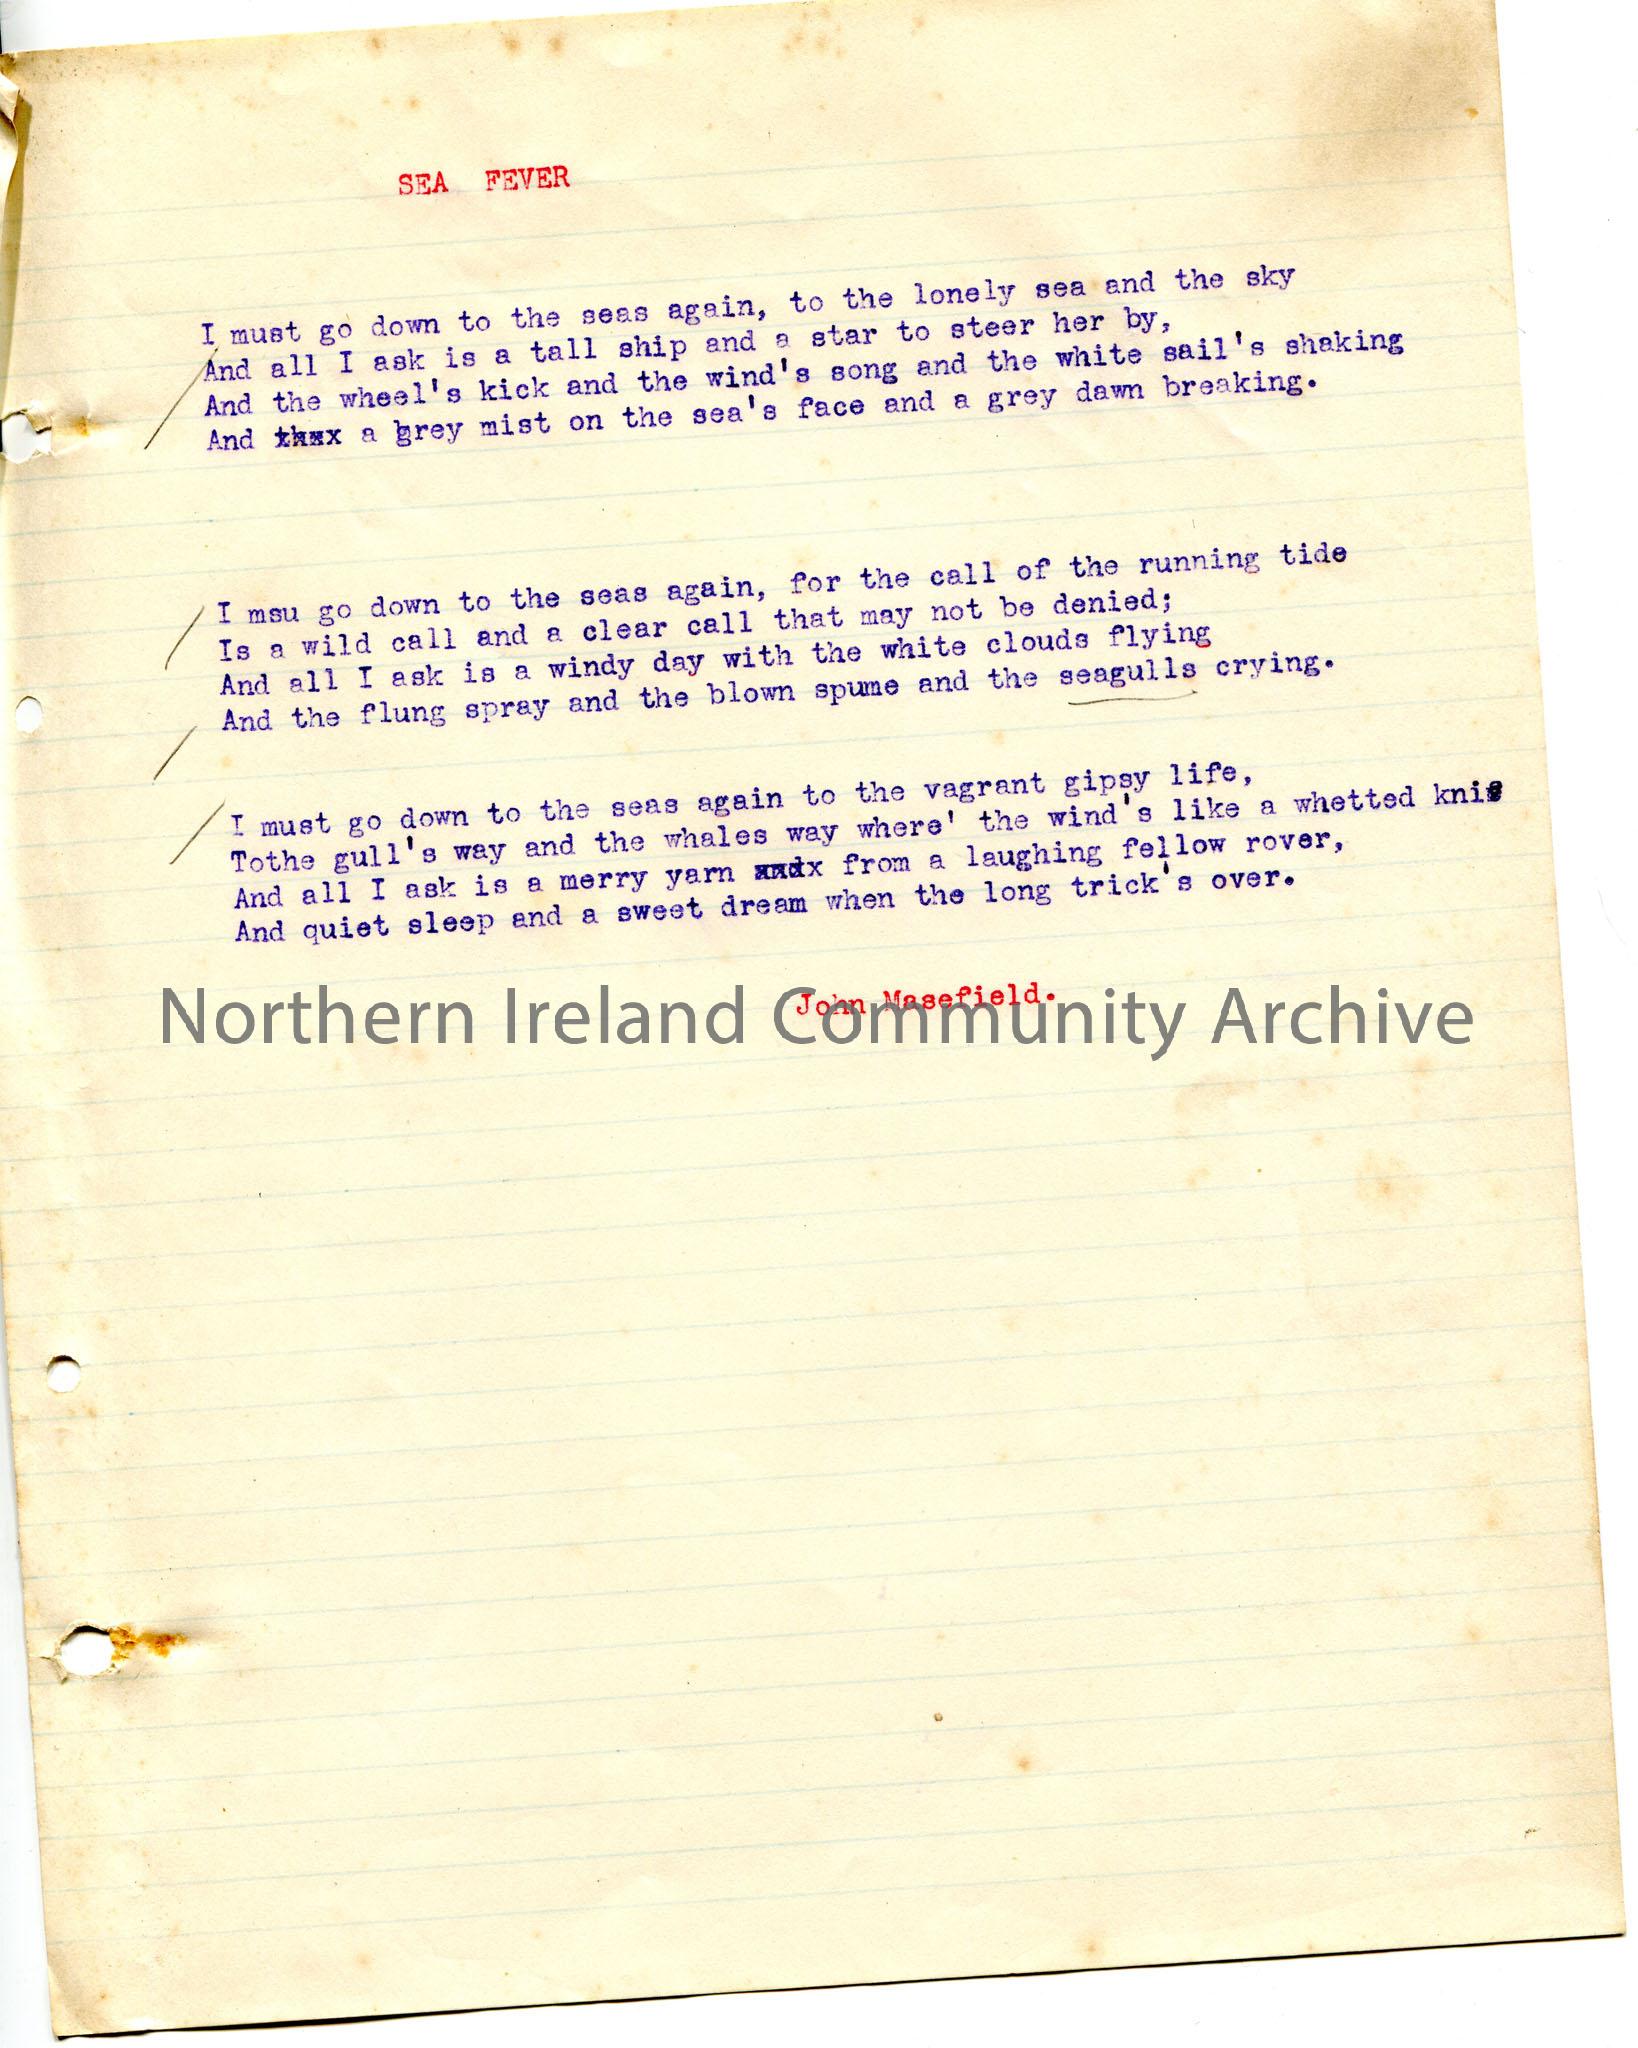 SEA FEVER
I must go down to the seas again, to the lonely sea and the sky
And all I ask is a tall ship and a star to steer her by,
And the wheel's kick and the wind's song and the white sail's shaking
And a grey mist on the sea's face and a grey dawn breaking.
I msu go down to the seas again, for the call of the running tide
Is a wild call and a clear call that may not be denied;
And all I ask is a windy day with the white clouds flying
And the flung spray and the blown spume and the seagulls crying.
I must go down to the seas again to the vagrant gipsy life,
Tothe gull's way and the whales way where' the wind's like a whetted
And all I ask is a merry yarn from a laughing fellow rover,
And quiet sleep and a sweet dream when the long trick's over.
John Masefield.
Northern Ireland Community Archive